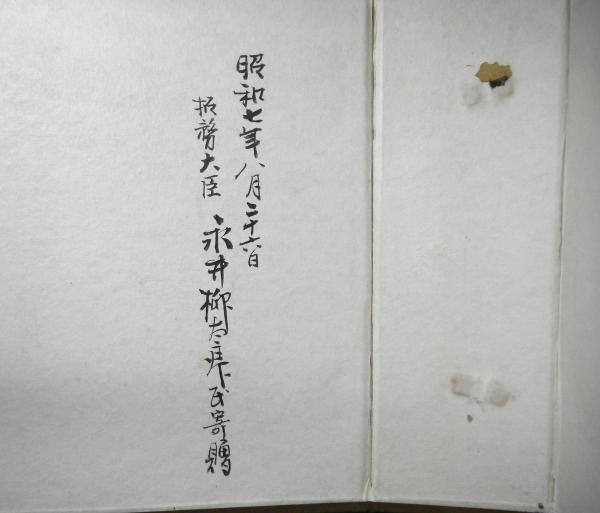 昭和七年八月二十六日
拓務大臣 永井柳太郎氏寄贈